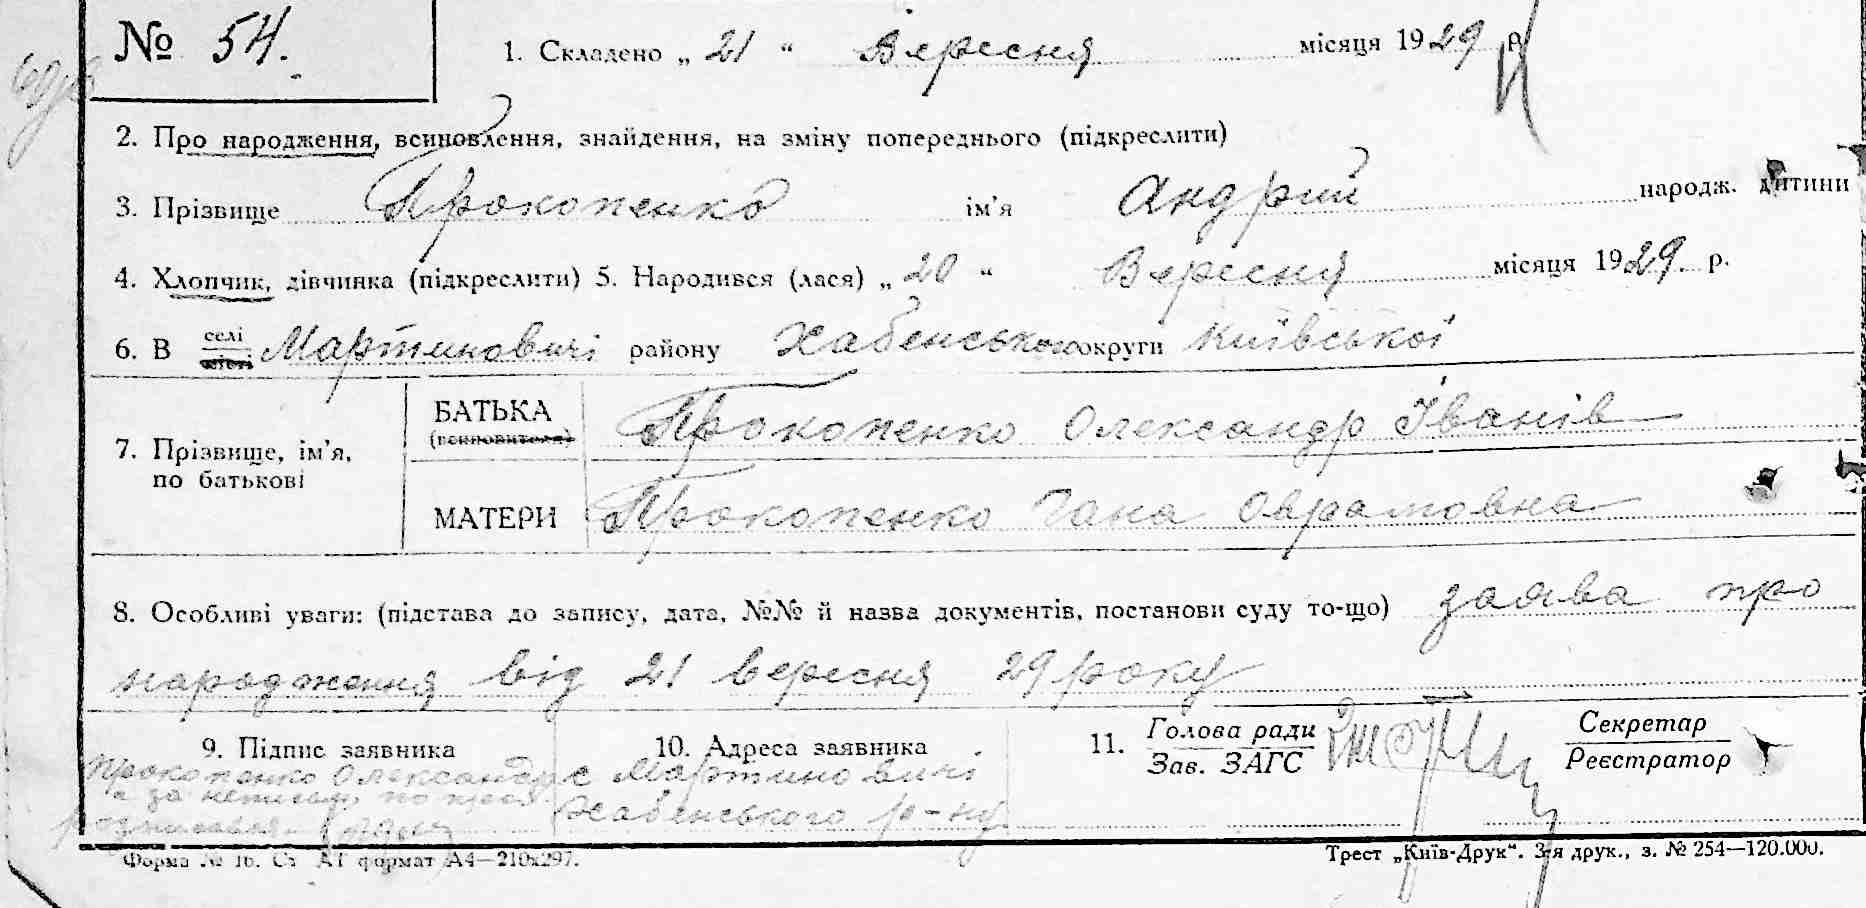 № 54.
1. Складено „ 21 “ Вересня місяця 1929 р.
2. Про народження, всиновлення, знайдення, на зміну попереднього (підкреслити)
3. Прізвище Прокопенко ім'я Андрий народж. дитини
4. Хлопчик, дівчинка (підкреслити) 5. Народився (лася) „ 20 “ Вересня місяця 1929. р.
6. В селі місті Мартиновичі району Хабенського округи Київської
7. Прізвище, ім'я, по батькові
БАТЬКА (всиновителя) Прокопенко Олександр Іванів
МАТЕРИ Прокопенко Гана Оврамовна
8. Особливі уваги: (підстава до запису, дата, №№ й назва документів, постанови суду то-що) заява про
народження від 21 вересня 29 року
9. Підпис заявника
Прокопенко Олександр
а за неписьм. по прозь
розписався
10. Адреса заявника
с Мартиновичі
Хабенського р-ну
11. Голова ради
Зав. ЗАГС
Секретар
Реєстратор
Форма № 1б. Ст АТ формат А4—210х297.
Трест „Київ-Друк“. 3-я друк., з. № 254—120.000.